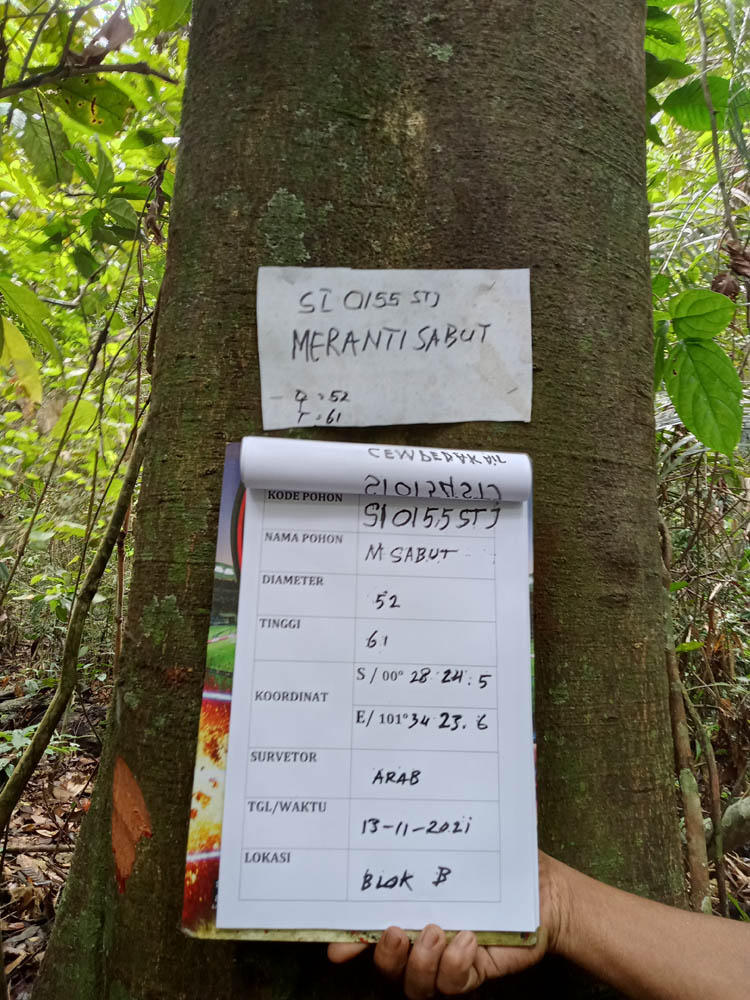 SI 0155 STJ
MERANTI SABUT
D = 52
T = 61
KODE POHON SI 0155 STJ
NAMA POHON M SABUT
DIAMETER 52
TINGGI 61
KOORDINAT S / 00° 28 24.5
E/ 101° 34 23.6
SURVETOR ARAB
TGL/WAKTU 13-11-2021
LOKASI BLOK B